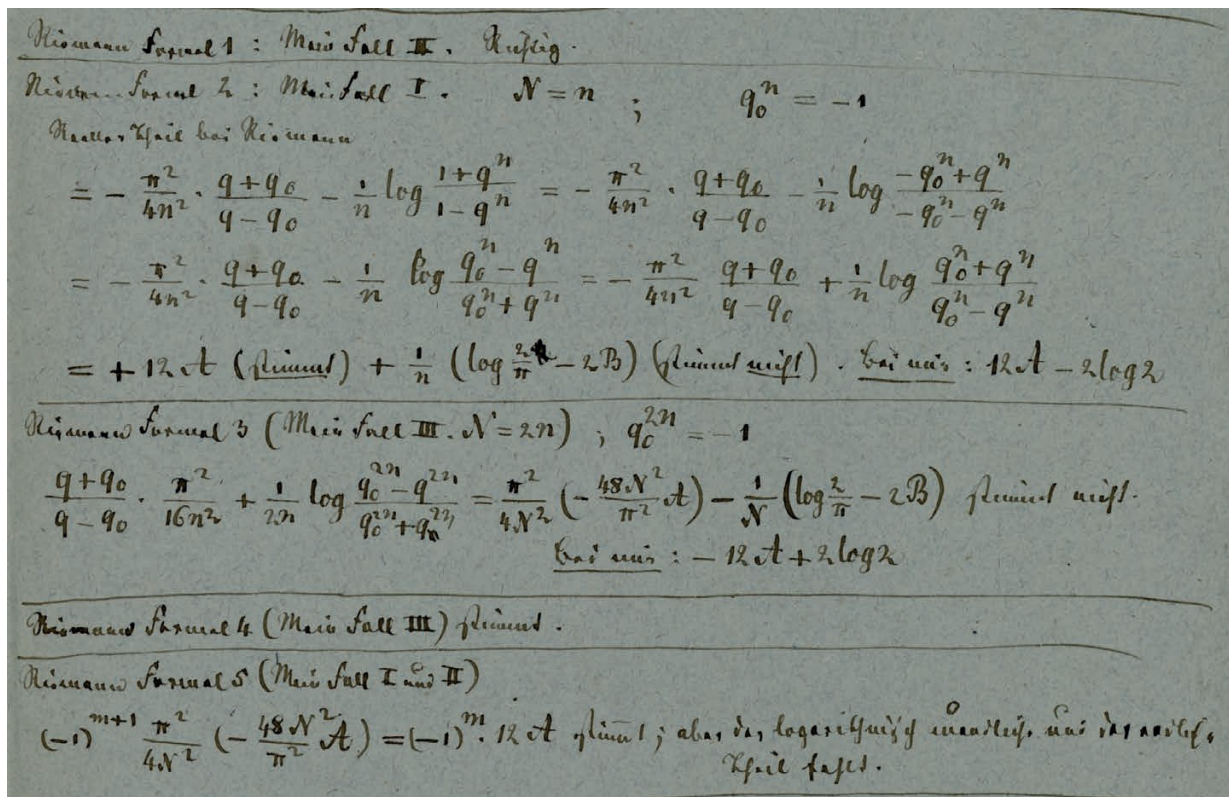 Riemann Formel 1 : Mein Fall II. Richtig.
Riemann Formel 2 : Mein Fall I. N = n ; q₀ⁿ = -1
Reeller Theil bei Riemann
= - π²/4n² · (q+q₀)/(q-q₀) - 1/n log (1+qⁿ)/(1-qⁿ) = - π²/4n² · (q+q₀)/(q-q₀) - 1/n log (-q₀ⁿ+qⁿ)/(-q₀ⁿ-qⁿ)
= - π²/4n² · (q+q₀)/(q-q₀) - 1/n log (q₀ⁿ-qⁿ)/(q₀ⁿ+qⁿ) = - π²/4n² (q+q₀)/(q-q₀) + 1/n log (q₀ⁿ+qⁿ)/(q₀ⁿ-qⁿ)
= + 12 A (stimmt) + 1/n (log 2/π - 2B) (stimmt nicht). Bei mir : 12 A - 2 log 2
Riemann Formel 3 (Mein Fall III. N = 2n) ; q₀²ⁿ = -1
(q+q₀)/(q-q₀) · π²/16n² + 1/2n log (q₀²ⁿ-q²ⁿ)/(q₀²ⁿ+q²ⁿ) = π²/4N² (- 48N²/π² A) - 1/N (log 2/π - 2B) stimmt nicht.
Bei mir : - 12 A + 2 log 2
Riemann Formel 4 (Mein Fall III) stimmt.
Riemann Formel 5 (Mein Fall I und II)
(-1)ᵐ⁺¹ π²/4N² (- 48N²/π² A) = (-1)ᵐ · 12 A stimmt ; aber der logarithmisch unendliche und der endliche
Theil fehlt.